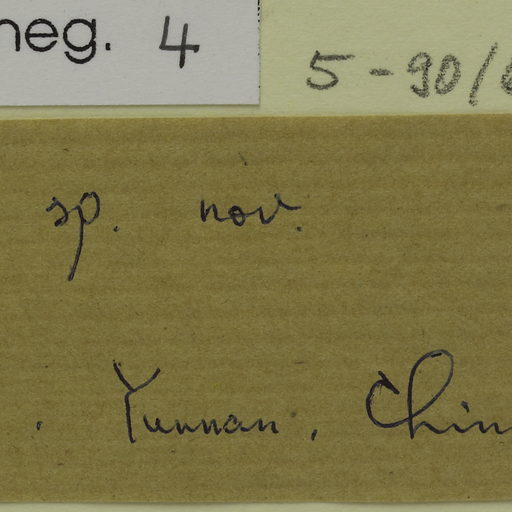 neg. 4
5-90/
sp. nov.
. Yunnan, Chin